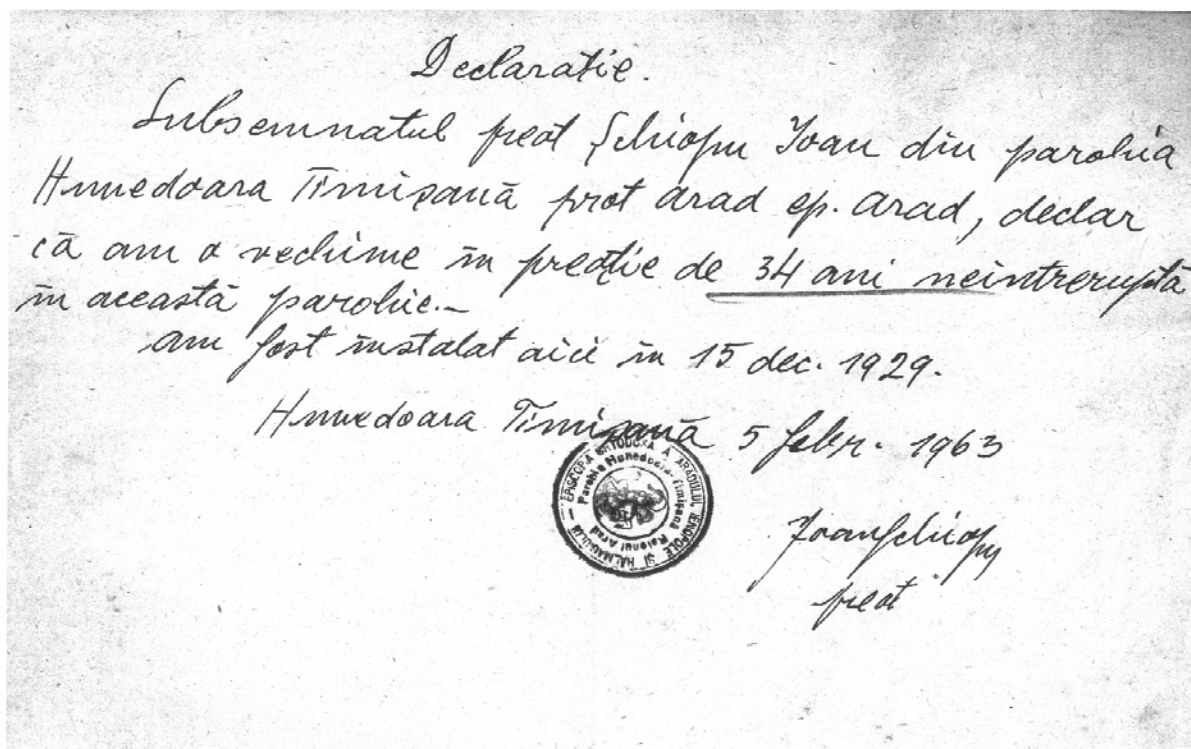 Declaratie.
Subsemnatul preot Șchiopu Ioan din parohia
Hunedoara Timișană prot Arad ep. Arad, declar
că am o vechime în preoție de 34 ani neintreruptă
în această parohie.-
Am fost instalat aici în 15 dec. 1929.
Hunedoara Timișană 5 febr. 1963
EPISCOPIA ORTODOXA A ARADULUI, IENOPOLE ȘI HALMAGIULUI
Parohia Hunedoara-Timișană Raionul Arad
Ioan Șchiopu
preot